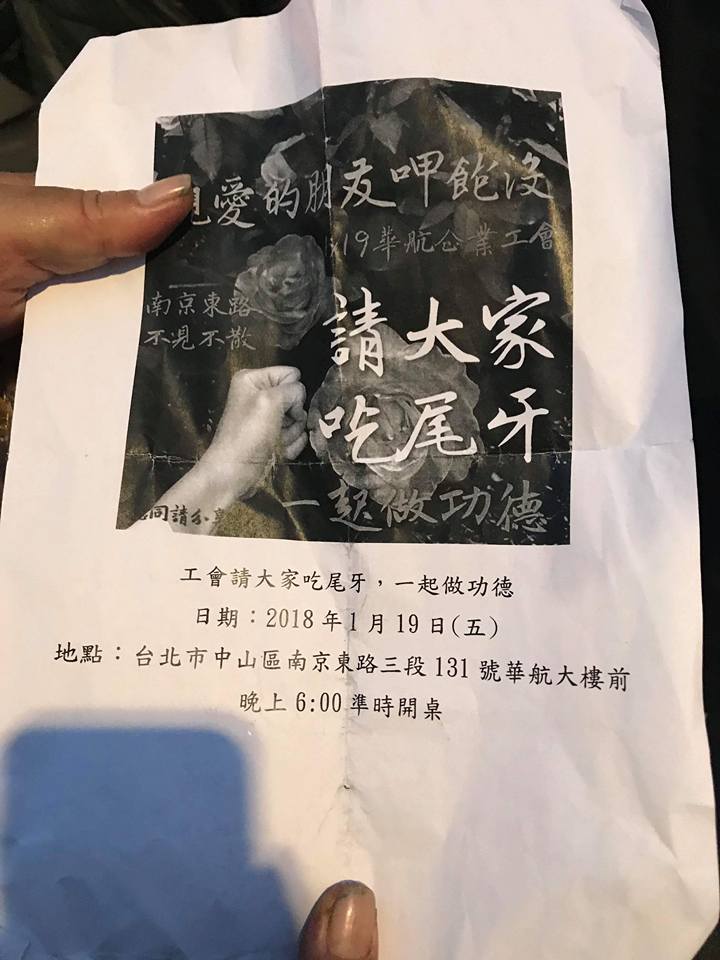 親愛的朋友呷飽沒
119華航企業工會
南京東路
不見不散
請大家
吃尾牙
一起做功德
認同請分享
工會請大家吃尾牙，一起做功德
日期：2018年1月19日(五)
地點：台北市中山區南京東路三段131號華航大樓前
晚上6:00準時開桌